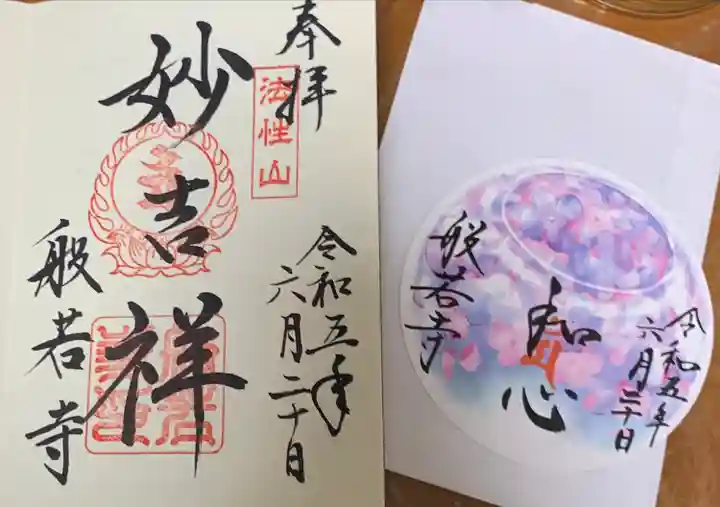 奉拝
法性山
妙吉祥
令和五年
六月二十日
般若寺
令和五年
六月二十日
心
般若寺